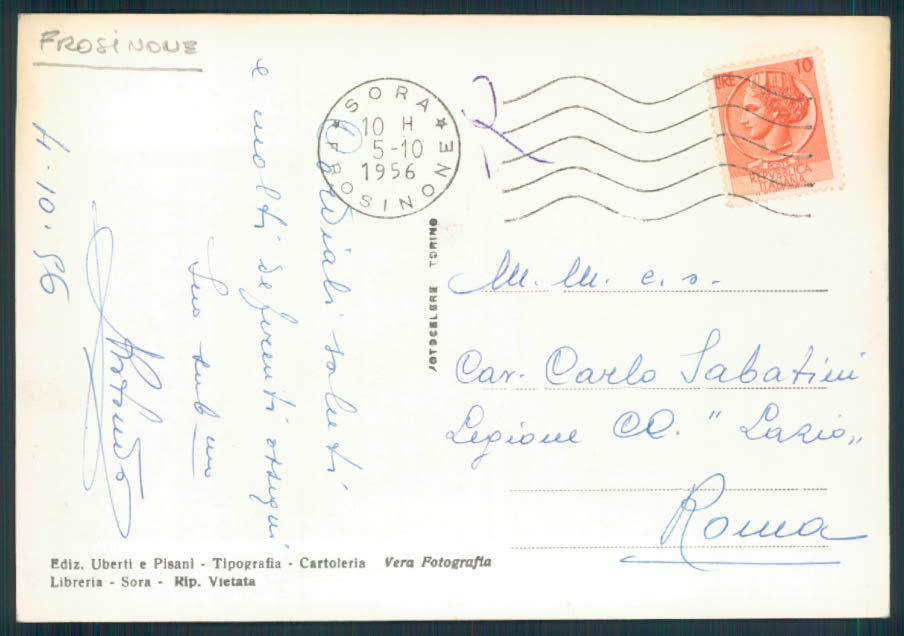 FROSINONE
4-10-56
Cordiali saluti
e molti deferenti ossequi
Suo
SORA
10 H
5-10
1956
FROSINONE
LIRE 10
POSTE
REPVBBLICA
ITALIANA
FOTOCELERE TORINO
M. M. c. s.
Car. Carlo Sabatini
Legione CC. "Lazio"
Roma
Ediz. Uberti e Pisani - Tipografia - Cartoleria Vera Fotografia
Libreria - Sora - Rip. Vietata